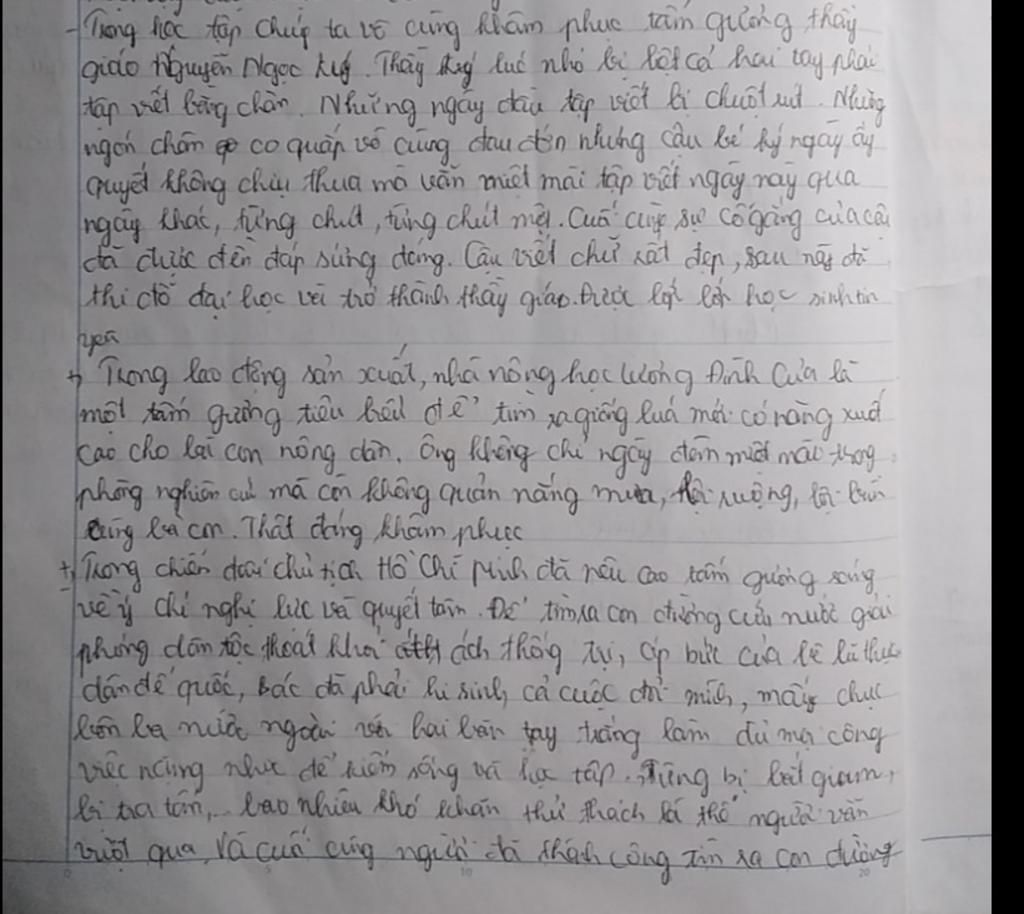 - Trong học tập chúng ta vô cùng khâm phục tấm gương thầy
giáo Nguyễn Ngọc Ký. Thầy Ký lúc nhỏ bị liệt cả hai tay phải
tập viết bằng chân. Những ngày đầu tập viết bị chuột rút. Những
ngón chân co quắp vô cùng đau đớn nhưng cậu bé Ký ngày ấy
quyết không chịu thua mà vẫn miệt mài tập viết ngày này qua
ngày khác, từng chút, từng chút một. Cuối cùng sự cố gắng của cậu
đã được đền đáp xứng đáng. Cậu viết chữ rất đẹp, sau này đã
thi đỗ đại học và trở thành thầy giáo. Được lớp lớp học sinh tin
yêu
+ Trong lao động sản xuất, nhà nông học Lương Định Của là
một tấm gương tiêu biểu để tìm ra giống lúa mới có năng xuất
cao cho bà con nông dân. Ông không chỉ ngày đêm miệt mài trong
phòng nghiên cứu mà còn không quản nắng mưa, lội ruộng, lội bùn
cùng bà con. Thật đáng khâm phục
+ Trong chiến đấu chủ tịch Hồ Chí Minh đã nêu cao tấm gương sáng
về ý chí nghị lực và quyết tâm. Để tìm ra con đường cứu nước giải
phóng dân tộc thoát khỏi ách thống trị, áp bức của bè lũ thực
dân đế quốc, Bác đã phải hi sinh cả cuộc đời mình, mấy chục
năm bôn ba nước ngoài với hai bàn tay trắng làm đủ mọi công
việc nặng nhọc để kiếm sống và học tập. Từng bị bắt giam,
bị tra tấn, bao nhiêu khó khăn thử thách là thế người vẫn
vượt qua. Và cuối cùng người đã thành công tìm ra con đường